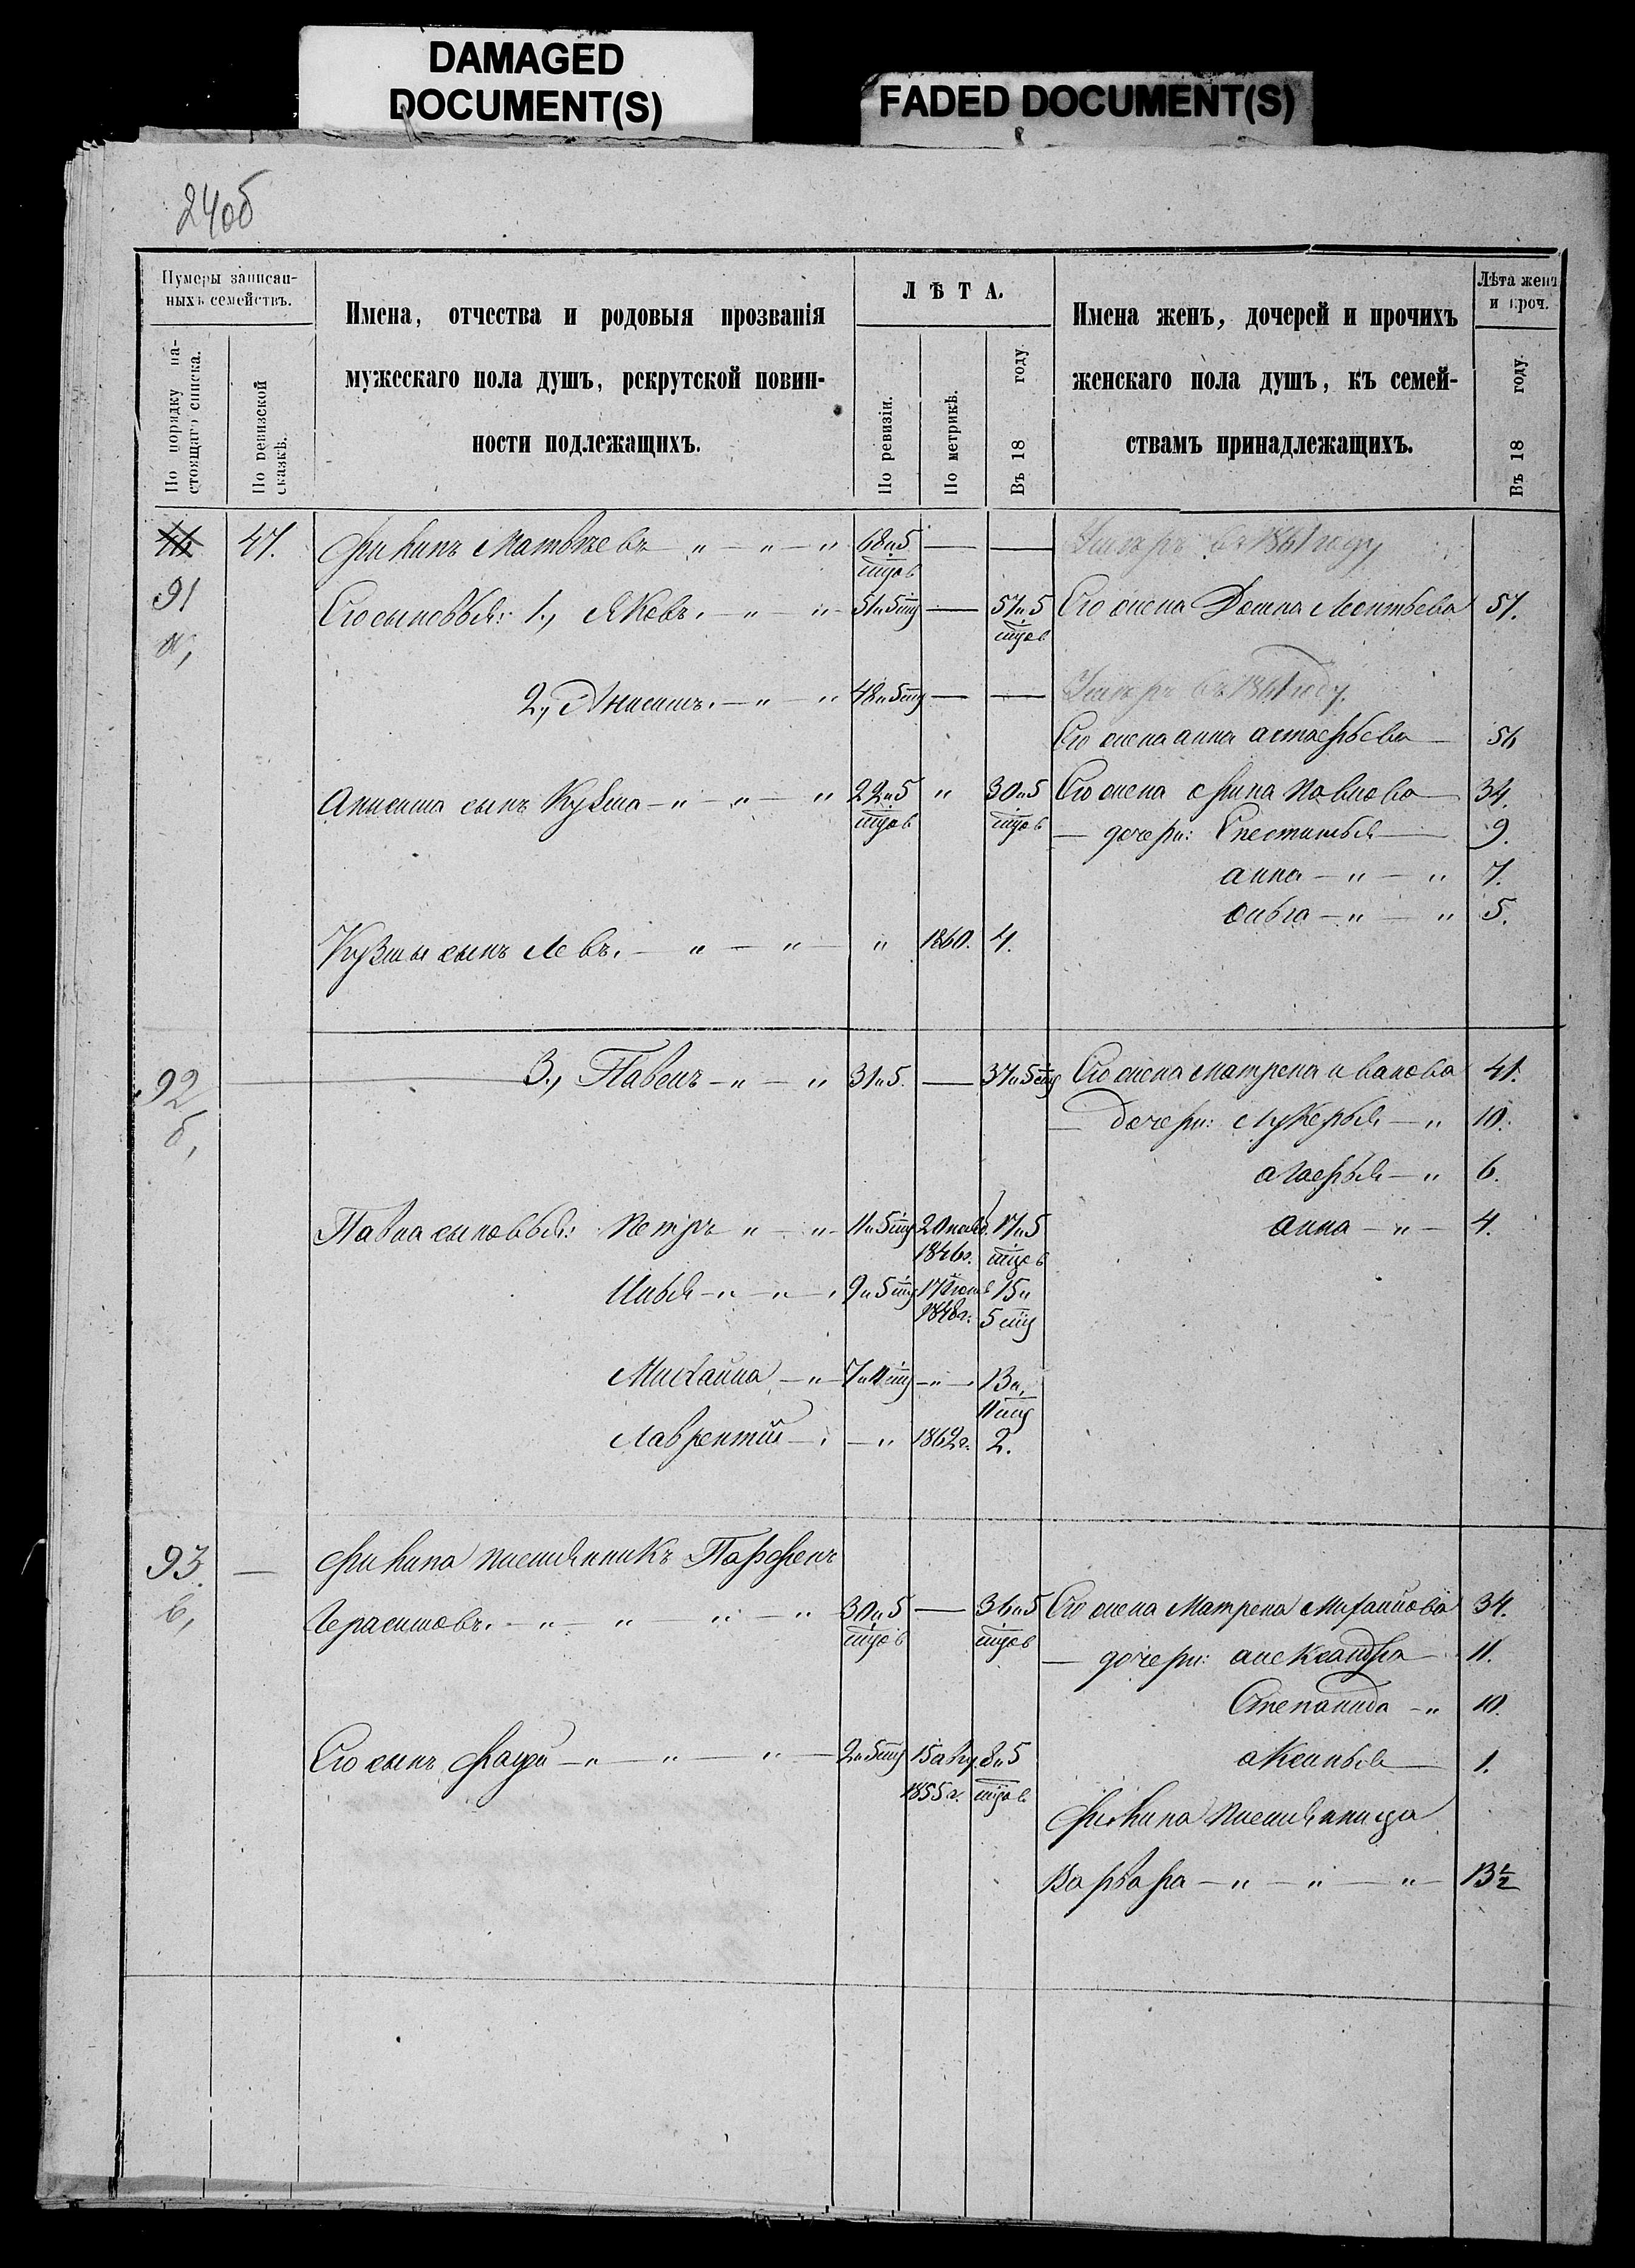 DAMAGED
DOCUMENT(S)
FADED DOCUMENT(S)
24об
Нумеры записан-
ныхъ семействъ.
По порядку на-
стоящаго списка.
По ревизской
сказкѣ.
Имена, отчества и родовыя прозванія
мужескаго пола душъ, рекрутской повин-
ности подлежащихъ.
ЛѢТА.
По ревизіи.
По метрикѣ.
Въ 18 году
Имена женъ, дочерей и прочихъ
женскаго пола душъ, къ семей-
ствамъ принадлежащихъ.
Лѣта женъ
и проч.
Въ 18 году
47. Матвѣевъ — " — " — " 68 и 5 — — Умеръ въ 1861 году
мцов
91 Его сыновья: 1., Яковъ. — " — " 51 и 5 мц — 57 и 5 Его жена Домна Леонтьева 57.
мцов
а,
2., Анисимъ. — " — " 48 и 5 мц — — Умеръ въ 1861 году.
Его жена Анна Астафьева — 56
Анисима сынъ Кузма — " — " — " 22 и 5 " 30 и 5 Его жена Ирина Павлова — 34.
мцов мцов
— дочери: — 9.
Анна — " — " 7.
Ольга — " — " 5.
Кузмы сынъ Левъ. — " — " — " 1860. 4.
92 3., Павелъ — " — " 31 и 5. — 37 и 5 мц Его жена Матрена Иванова 41.
б,
— Дочери: Лукерья — " 10.
Агафья — " 6.
Павла сыновья: Петръ " — " 11 и 5 мц 20 1846 г. 17 и 5 мцов Анна — " — 4.
Илья — " — " — 9 и 5 мц 17 1848 г. 15 и 5 мц
Михаила — " — 7 и 11 мц — " — 13 и 11 мц
Лаврентій — — " 1862 г. 2.
93. — племянникъ Парфенъ
в, Герасимовъ. — " — " — " — " 30 и 5 — 36 и 5 Его жена Матрена Михайлова 34.
мцов мцов
— дочери: Александра 11.
Степанида — " 10.
Его сынъ — " — " — " — 2 и 5 мц 15 авгу. 8 и 5 Аксинья — 1.
1855 г. мцов
племянница
Варвара — " — " — " — 13½